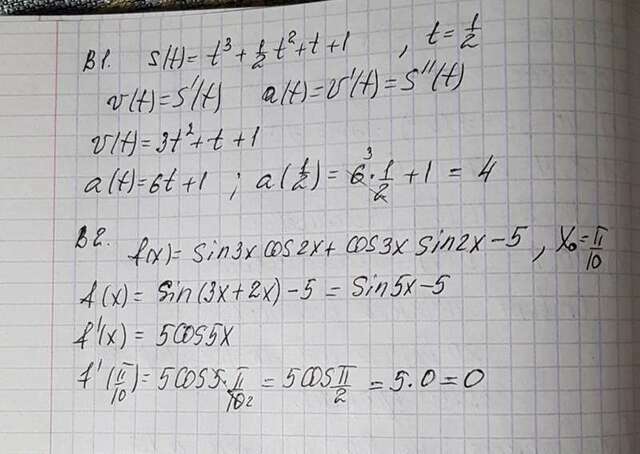 В1. S(t)= t³ + 1/2 t² + t + 1 , t = 1/2
v(t) = S'(t) a(t) = v'(t) = S''(t)
v(t) = 3t² + t + 1
a(t) = 6t + 1 ; a(1/2) = 6³ · 1/2 + 1 = 4
В2. f(x) = sin3x cos2x + cos3x sin2x - 5 , X₀ = π/10
f(x) = sin(3x+2x) - 5 = sin5x - 5
f'(x) = 5cos5x
f'(π/10) = 5cos5·π/10₂ = 5cos π/2 = 5·0 = 0